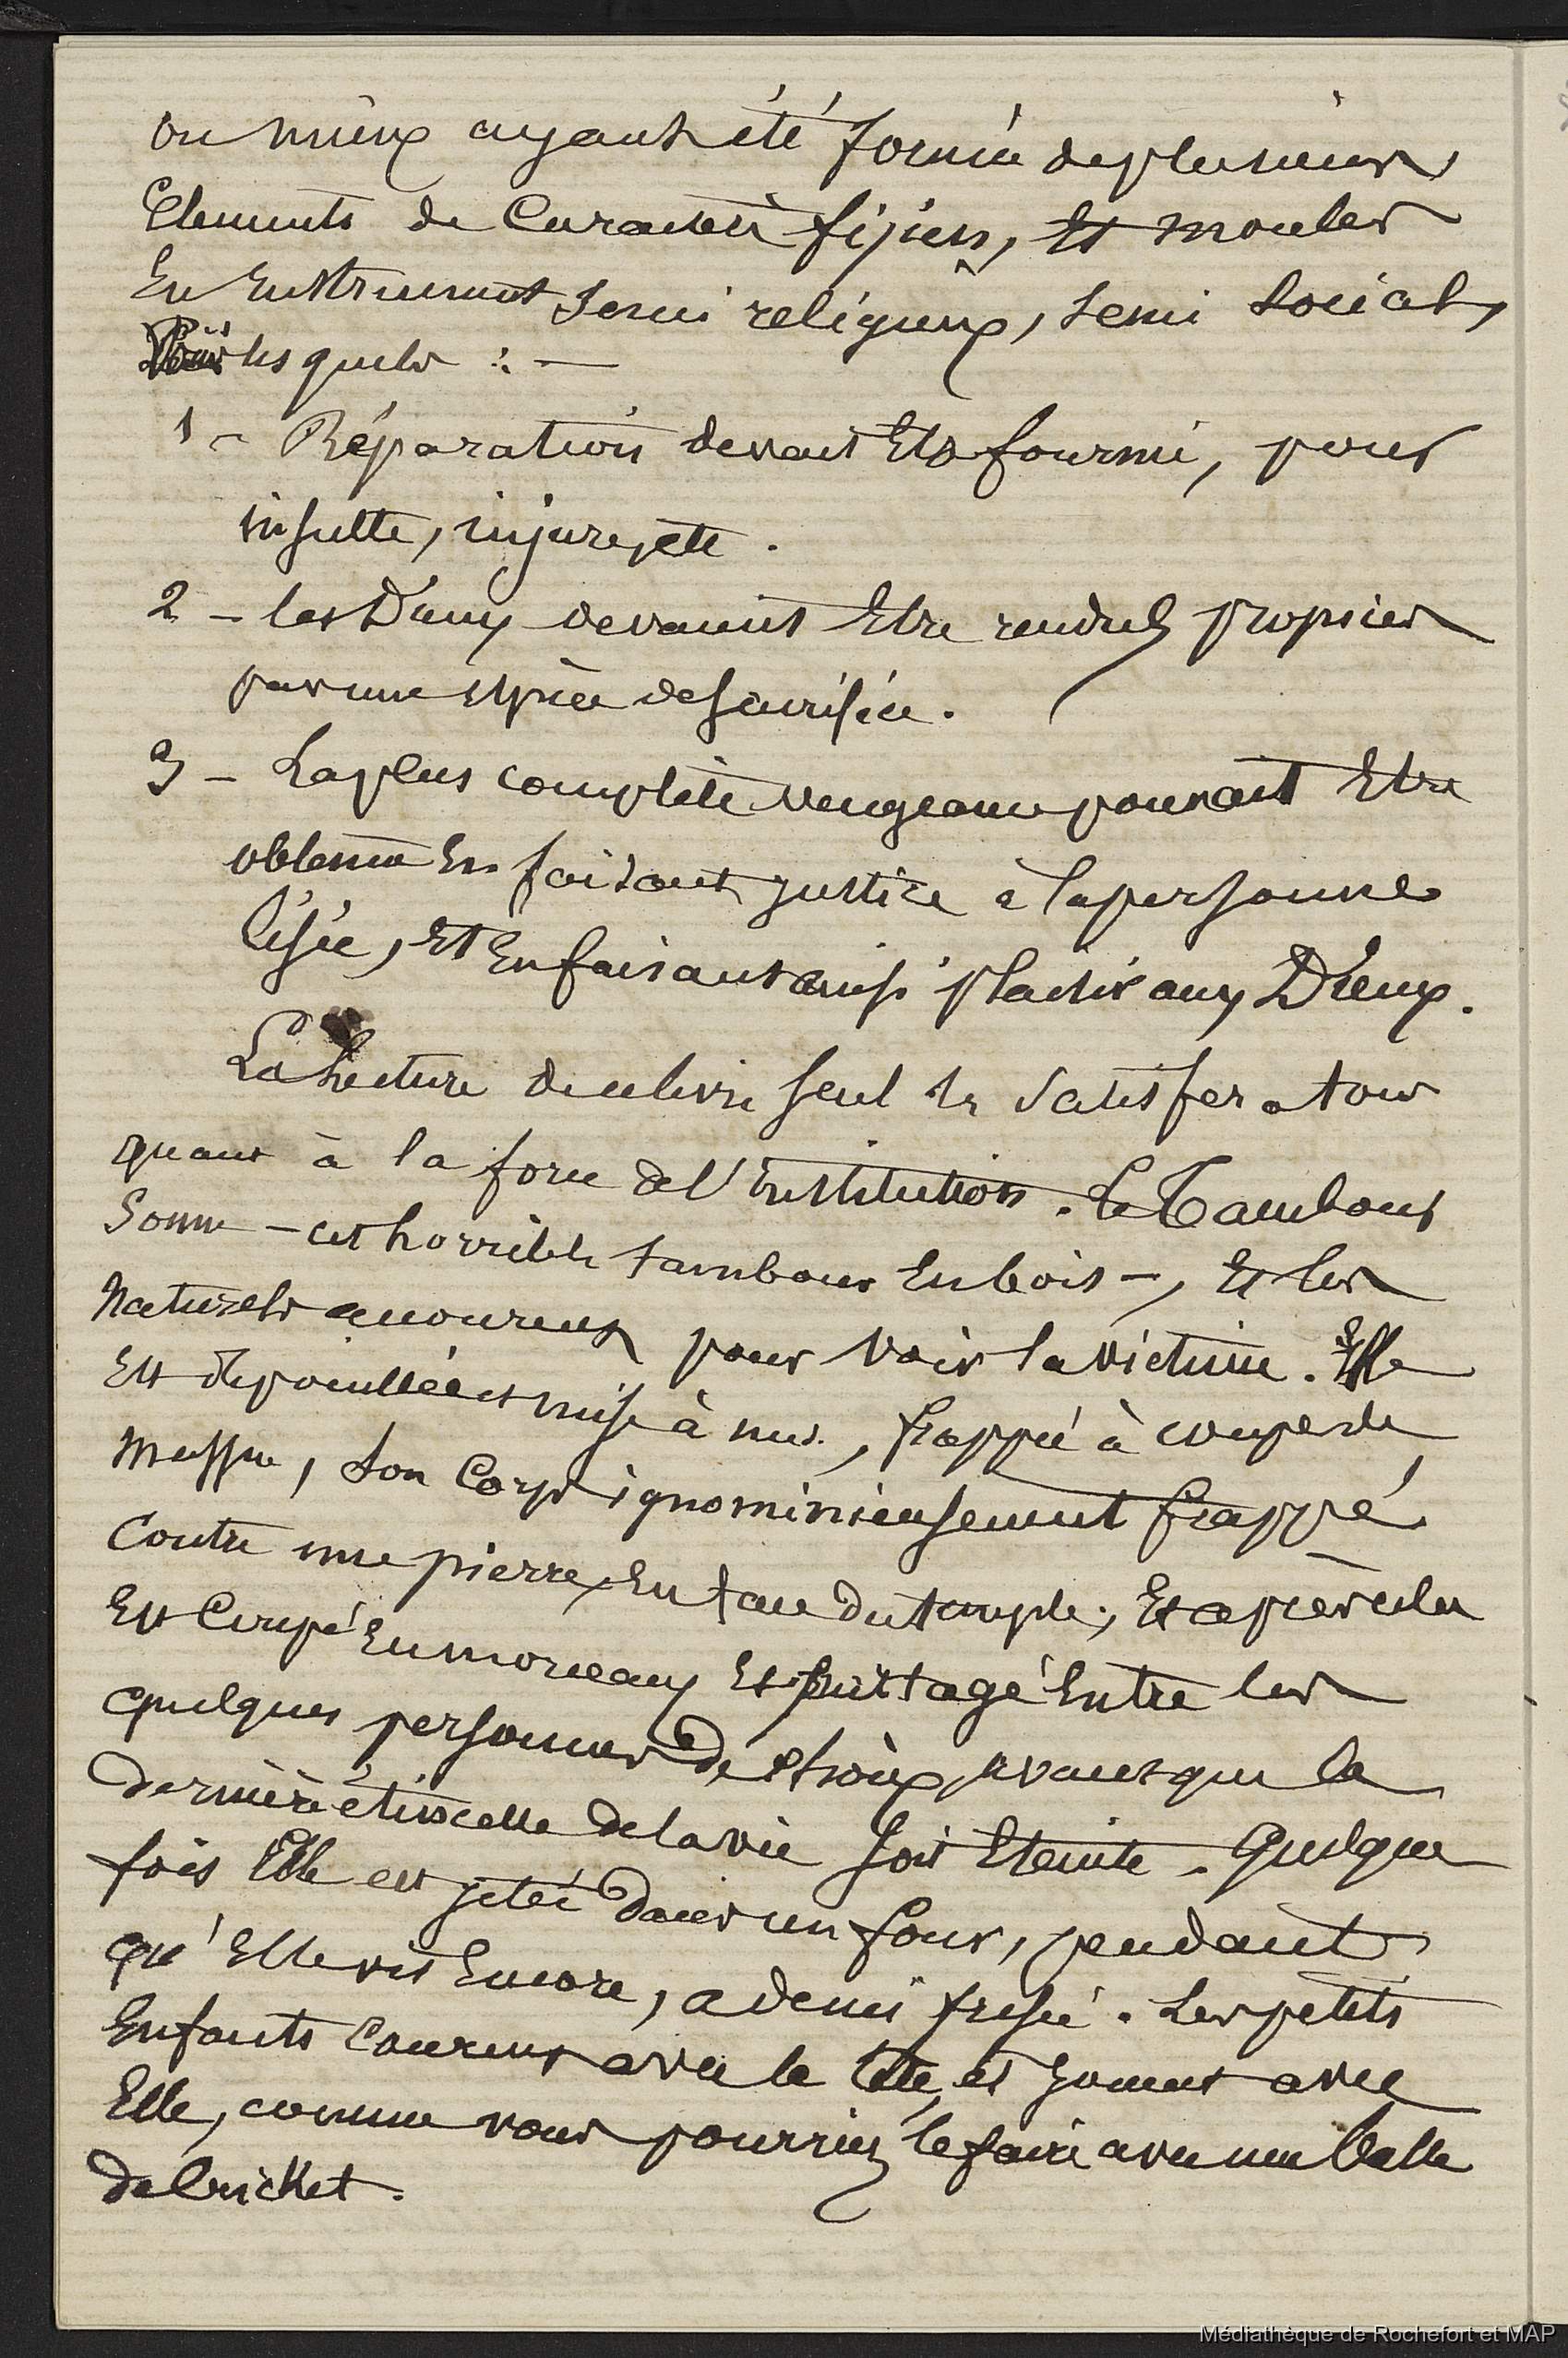 ou mieux ayant été formée de plusieurs
Elements de Caractère fijien, Et moulés
En Enstrument semi religieux, semi social,
lesquels : —
1 - Réparation devait Etre fourni, pour
insulte, injure, etc.
2 - les Dieux devaient Etre rendus propices
par une espèce de sacrifice.
3 - La plus complète vengeance pouvait Etre
obtenue En faisant justice à la personne
lésée, Et En faisant ainsi plaisir aux Dieux.
La Lecture de ce livre seul le satisfera tous
quant à la force de l'Enstitution. Le Tambour
Sonne - cet horrible tambour En bois -, Et les
Naturels accourent pour voir la victime. Elle
Est depouillée et mise à nue, frappée à coups de
Massue, son Corps ignominieusement frappé
Contre une pierre, En face du temple, Et après cela
Est Coupé En morceaux Et partagé Entre les
quelques personnes de choix, avant que la
dernière étincelle de la vie soit Eteinte. Quelque
fois Elle est jetée dans un four, pendant
qu'Elle vit Encore, a demi . Les petits
Enfants Courent avec la tête, et jouent avec
Elle, comme vous pourriez le faire avec une balle
de Cricket.
Médiathèque de Rochefort et MAP